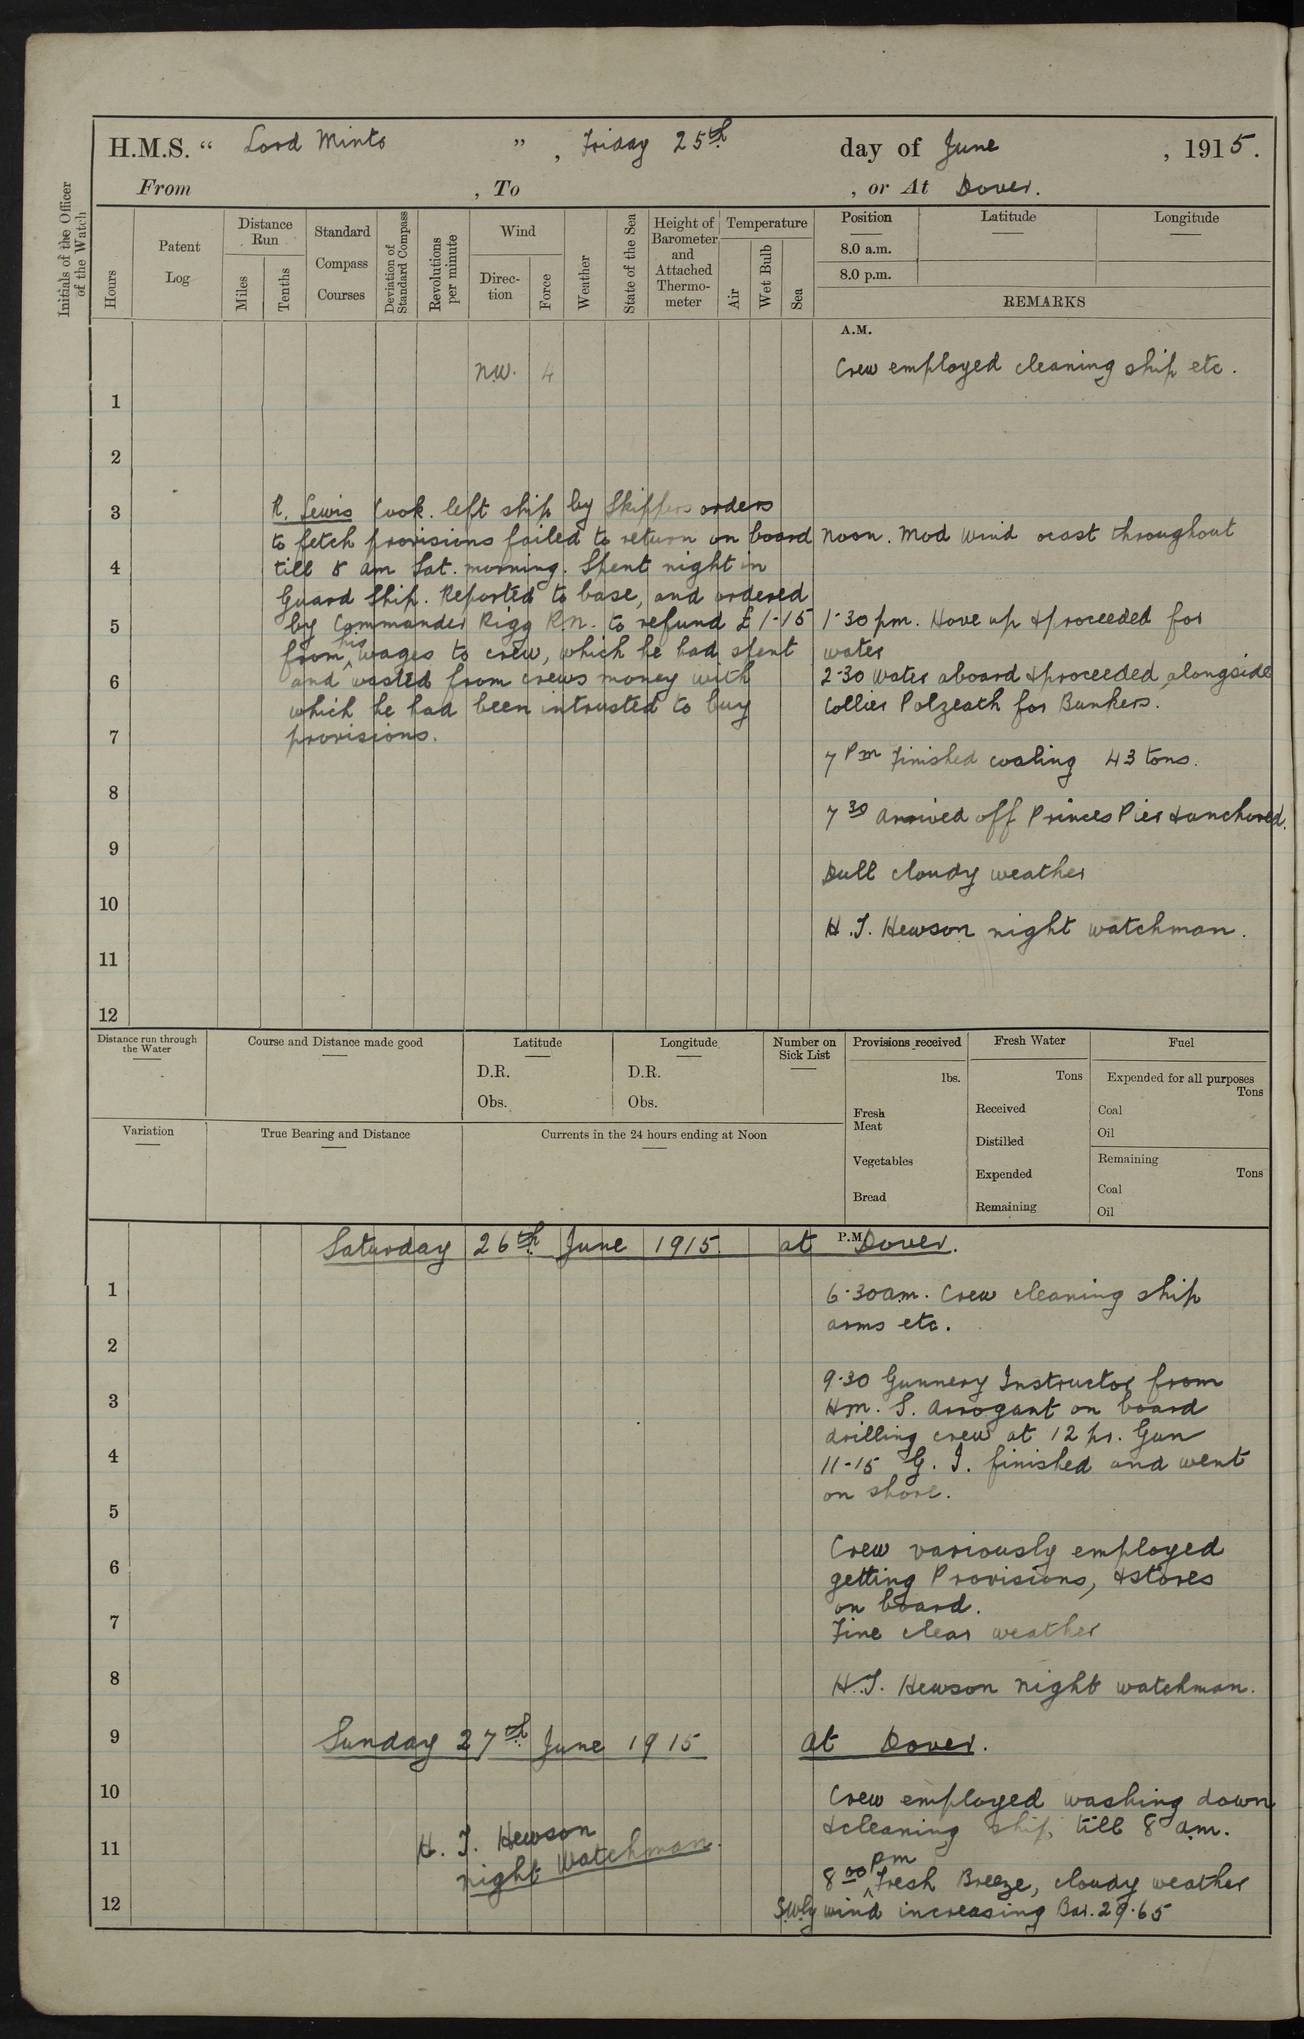 H.M.S. “ Lord Minto ” , Friday 25th day of June , 1915.
From , To , or At Dover.
Initials of the Officer of the Watch
Hours
Patent Log
Distance Run
Miles
Tenths
Standard Compass Courses
Deviation of Standard Compass
Revolutions per minute
Wind
Direc-tion
Force
Weather
State of the Sea
Height of Barometer and Attached Thermo-meter
Temperature
Air
Wet Bulb
Sea
Position Latitude Longitude
8.0 a.m.
8.0 p.m.
REMARKS
A.M.
N.W. 4 Crew employed cleaning ship etc.
1
2
3
4
5
6
7
8
9
10
11
12
R. Lewis Cook. left ship by Skippers orders
to fetch provisions failed to return on board
till 8 am Sat. morning. Spent night in
Guard Ship. Reported to base, and ordered
by Commander Rigg R.N. to refund £1-15
from his wages to crew, which he had spent
and wasted from crews money with
which he had been intrusted to buy
provisions.
Noon. Mod wind ocast throughout
1-30 pm. Hove up & proceeded for
water
2-30 water aboard & proceeded alongside
Collier Polzeath for Bunkers.
7 Pm Finished coaling 43 tons.
7 30 arrived off Princes Pier & anchored.
Dull cloudy weather
H.J. Hewson night watchman.
Distance run through the Water
Course and Distance made good
Latitude
D.R.
Obs.
Longitude
D.R.
Obs.
Number on Sick List
Provisions received
lbs.
Fresh Meat
Vegetables
Bread
Fresh Water
Tons
Received
Distilled
Expended
Remaining
Fuel
Expended for all purposes
Tons
Coal
Oil
Remaining
Tons
Coal
Oil
Variation
True Bearing and Distance
Currents in the 24 hours ending at Noon
P.M.
Saturday 26th June 1915 at Dover.
1
2
3
4
5
6
7
8
9
10
11
12
6-30 am. Crew cleaning ship
arms etc.
9-30 Gunnery Instructor from
Hm. S. Arrogant on board
drilling crew at 12 pr. Gun
11-15 G. I. finished and went
on shore.
Crew variously employed
getting Provisions, & stores
on board.
Fine clear weather
H.J. Hewson night watchman.
Sunday 27th June 1915 at Dover.
Crew employed washing down
& cleaning ship till 8 am.
H. J. Hewson
night Watchman.
8 00 pm Fresh Breeze, cloudy weather
S.W.ly wind increasing Bar. 29.65